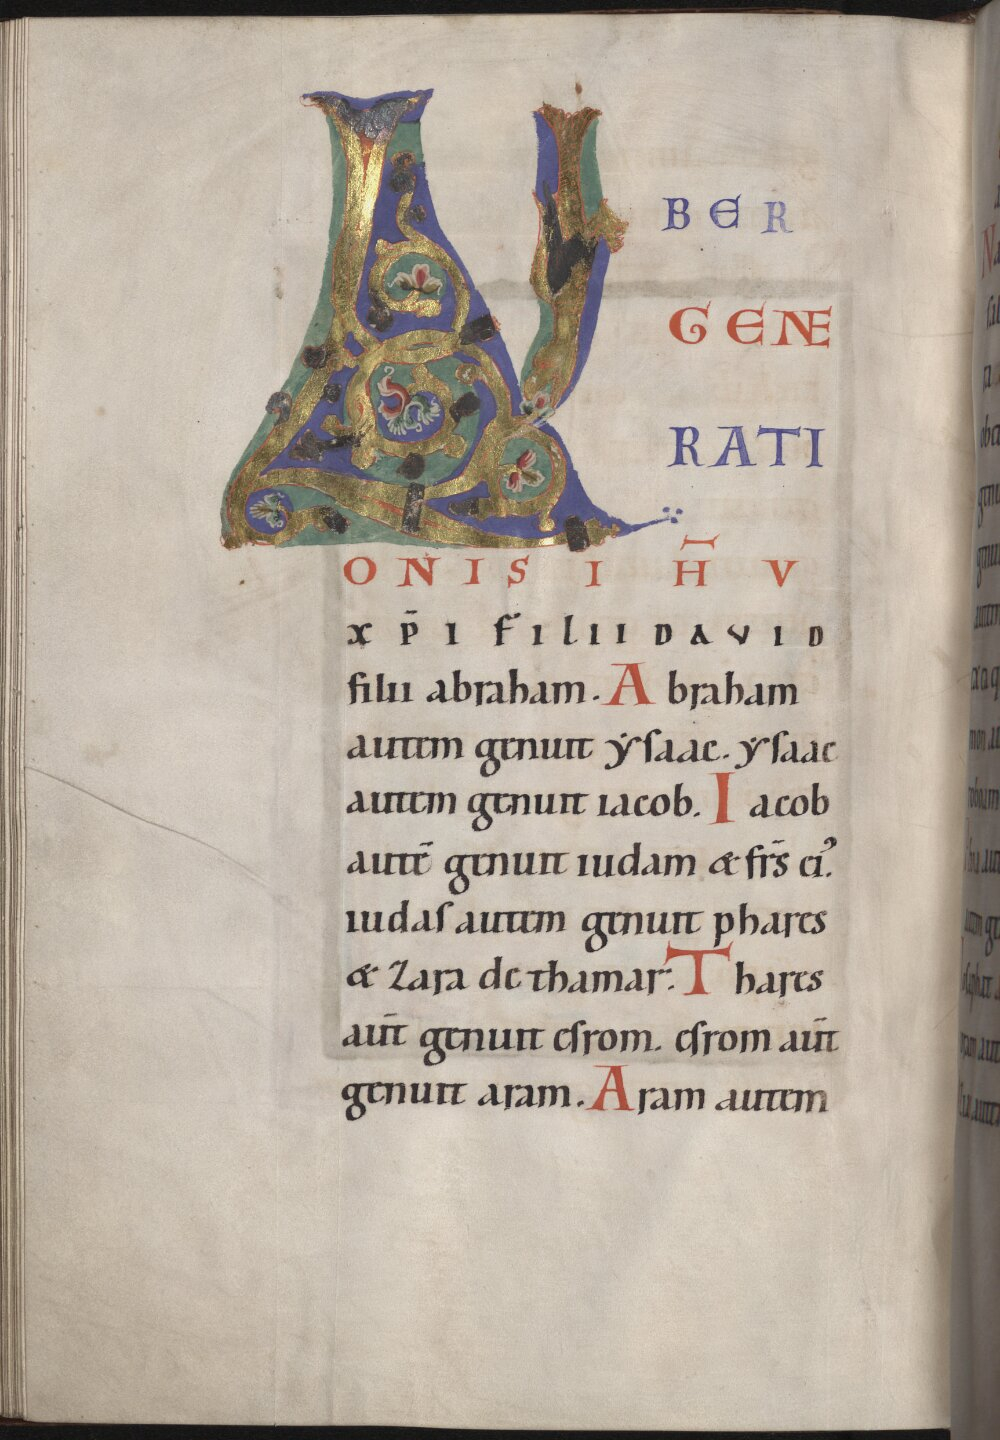 LIBER
GENE
RATI
ONIS IH̅V
xp̅i filii DAVID
filii abraham. Abraham
autem genuit ẏsaac. ẏsaac
autem genuit iacob. Iacob
autē genuit iudam & fr̅s ei᾽.
iudas autem genuit phares
& zara de thamar. Thares
aut̅ genuit esrom. esrom aut̅
genuit aram. Aram autem